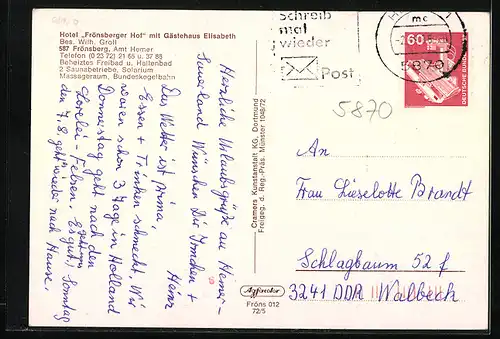 Hotel „Frönsberger Hof" mit Gästehaus Elisabeth
Bes. Wilh. Groll
587 Frönsberg, Amt Hemer
Telefon (0 23 72) 21 65 u. 37 88
Beheiztes Freibad u. Hallenbad
2 Saunabetriebe, Solarium
Massageraum, Bundeskegelbahn
Herzliche Urlaubsgrüße aus Hemer-
Sauerland Wünschen Dir Irmchen +
Heinz
Das Wetter ist prima,
Essen + Trinken schmeckt. Wir
waren schon 3 Tage in Holland
Donnerstag geht nach den
Lorelei-Felsen. Es
gut, Sonntag
den 7.8. geht's wieder nach Hause.
Cramers Kunstanstalt KG, Dortmund
Freigeg. d. Reg.-Präs. Münster 1046/72
Agfacolor
Fröns 012
72/5
Schreib
mal
wieder
Post
mc
5870
60
DEUTSCHE BUNDES
5870
An
Frau Lieselotte Brandt
Schlagbaum 52 f
3241 DDR Walbeck